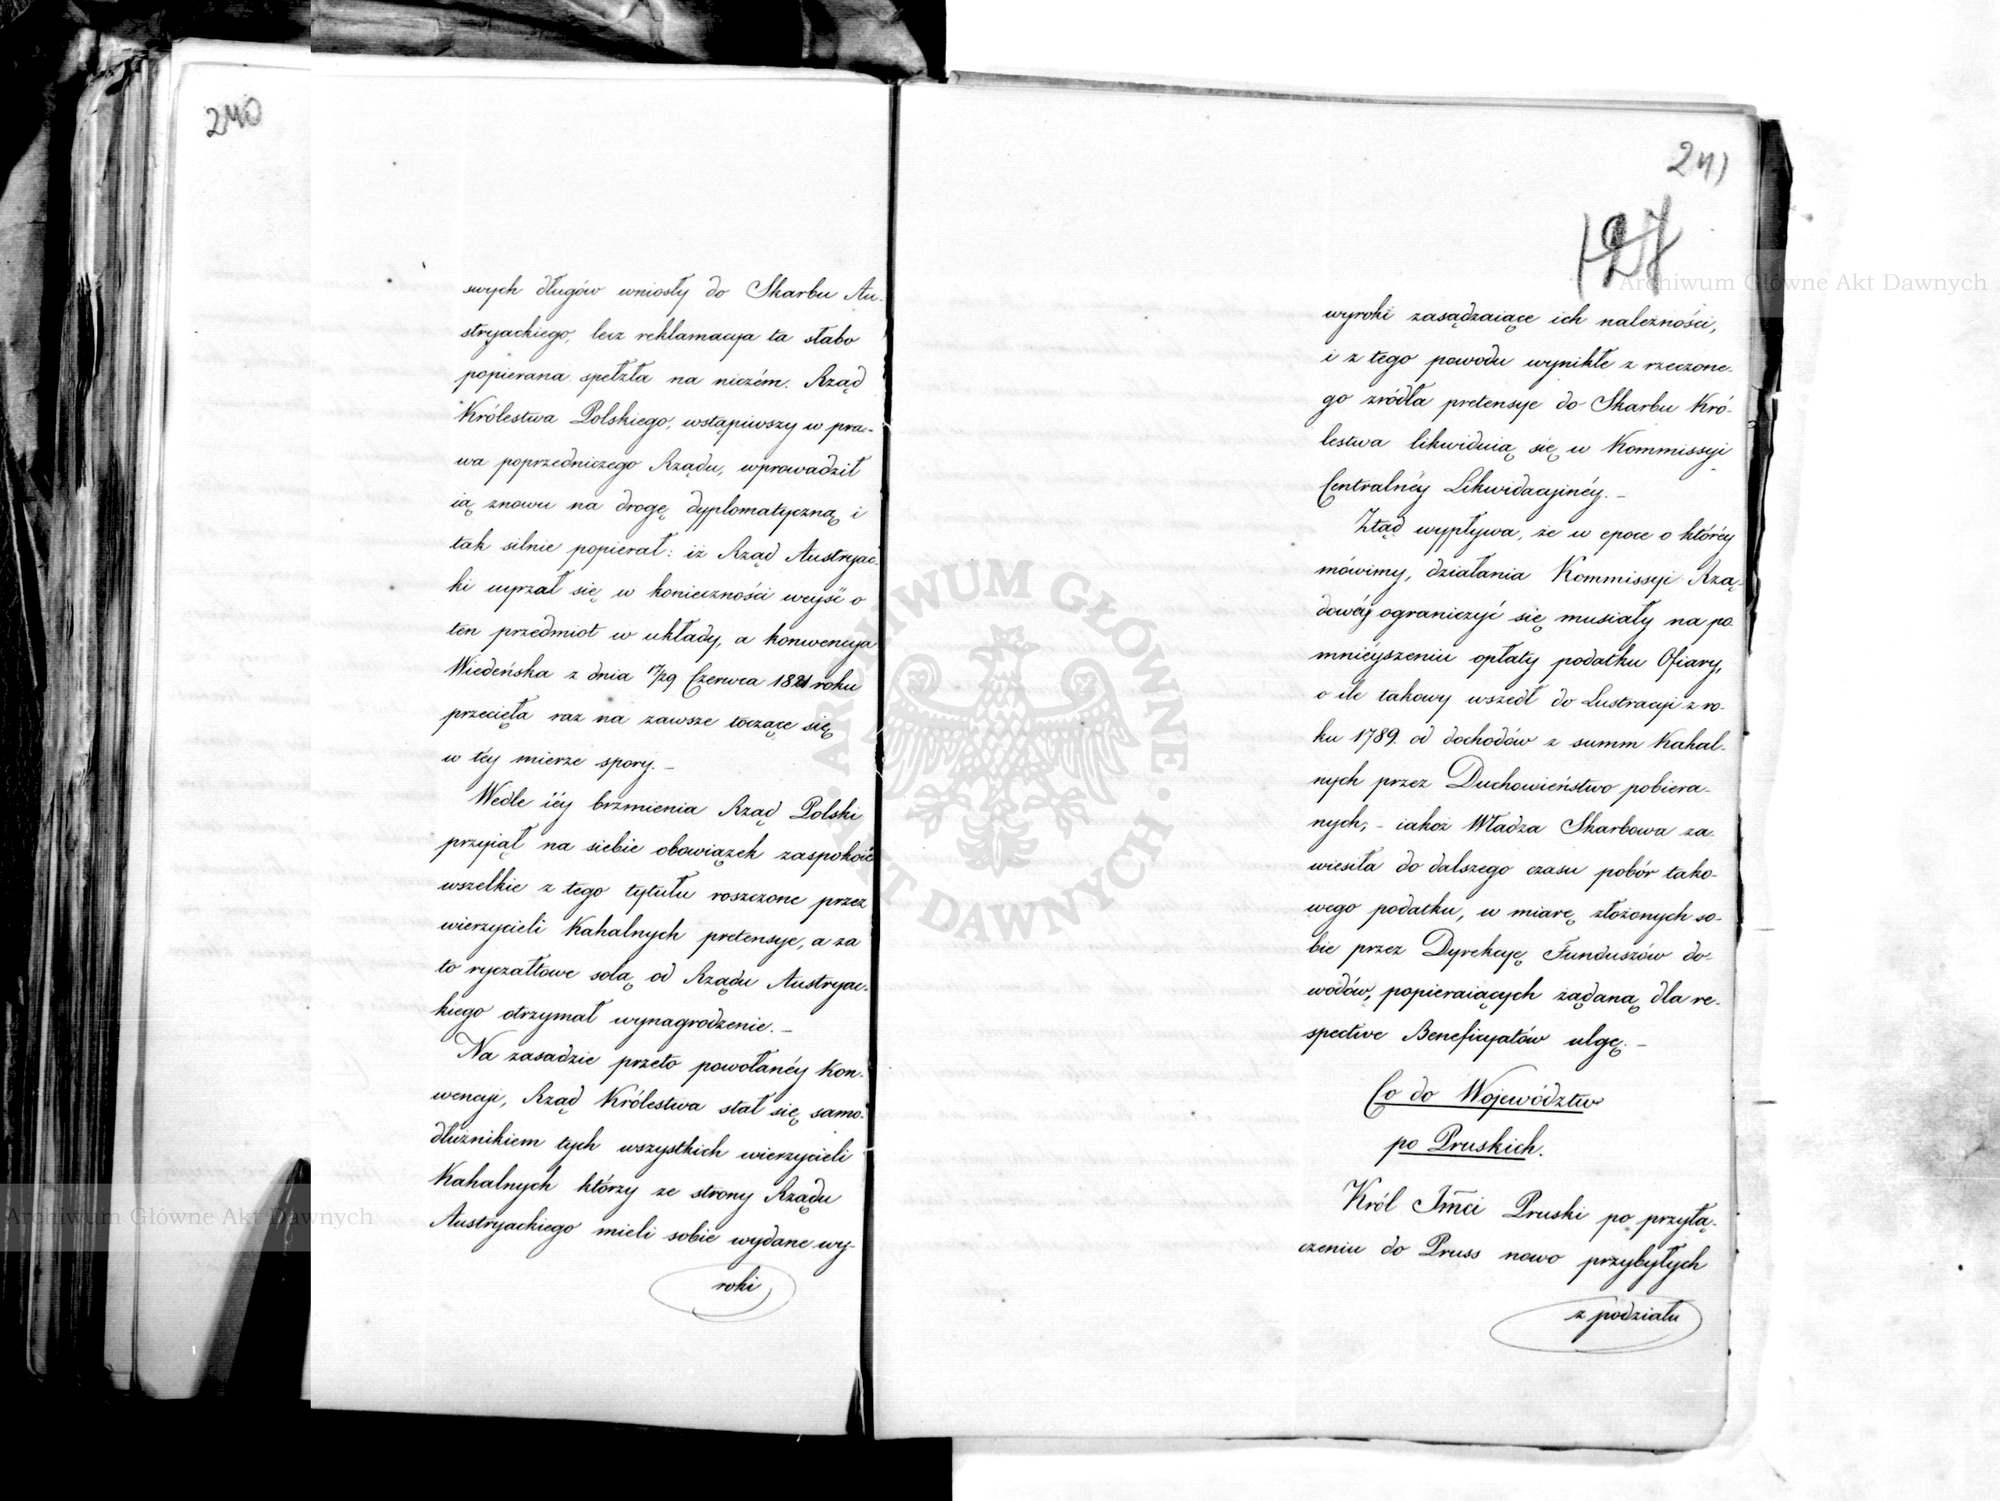 240
swych długów wniosły do Skarbu Au-
stryackiego, lecz reklamacya ta słabo
popierana spełzła na niczém. Rząd
Królestwa Polskiego, wstąpiwszy w pra-
wa poprzedniczego Rządu, wprowadził
ią znowu na drogę dyplomatyczną i
tak silnie popierał: iż Rząd Austryac-
ki uyrzał się w konieczności weyść o
ten przedmiot w układy, a konwencya
Wiedeńska z dnia 17/29 Czerwca 1821 roku
przecięła raz na zawsze toczące się
w téy mierze spory. –
Wedle iéy brzmienia Rząd Polski
przyiął na siebie obowiązek zaspokoić
wszelkie z tego tytułu roszczone przez
wierzycieli Kahalnych pretensye, a za
to ryczałtowe solą od Rządu Austryac-
kiego otrzymał wynagrodzenie. –
Na zasadzie przeto powołanéy kon-
wencyi, Rząd Królestwa stał się samo-
dłużnikiem tych wszystkich wierzycieli
Kahalnych którzy ze strony Rządu
Austryackiego mieli sobie wydane wy-
roki
241
127
wyroki zasądzaiące ich należności,
i z tego powodu wynikłe z rzeczone-
go zródła pretensye do Skarbu Kró-
lestwa likwiduią się w Kommissyi
Centralnéy Likwidacyinéy. –
Ztąd wypływa, że w epoce o któréy
mówimy, działania Kommissyi Rzą-
dowéy ograniczyć się musiały na po
mnieyszeniu opłaty podatku Ofiary,
o ile takowy wszedł do Lustracyi z ro-
ku 1789. od dochodów z summ Kahal-
nych przez Duchowieństwo pobiera-
nych; – iakoż Władza Skarbowa za-
wiesiła do dalszego czasu pobór tako-
wego podatku, w miarę złożonych so-
bie przez Dyrekcyę Funduszów do-
wodów, popieraiących żądaną dla re-
spective Beneficyatów ulgę. –
Co do Województw
po Pruskich.
Król Jmci Pruski po przyłą-
czeniu do Pruss nowo przybyłych
z podziału
Archiwum Główne Akt Dawnych
Archiwum Główne Akt Dawnych
ARCHIWUM GŁÓWNE AKT DAWNYCH